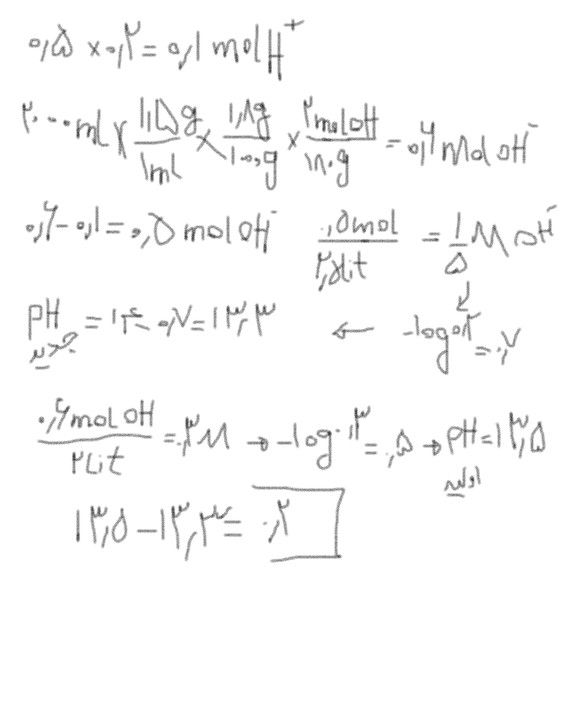 ۰٫۵ × ۰٫۲ = ۰٫۱ mol H⁺
۲۰۰۰ ml × ۱٫۱۵g/۱ml × ۱٫۸g/۱۰۰g × ۲mol OH/۱۸۰g = ۰٫۶ Mol OH⁻
۰٫۶ - ۰٫۱ = ۰٫۵ mol OH⁻ ۰٫۵mol/۲٫۵lit = ۱/۵ M OH⁻
pH = ۱۴ - ۰٫۷ = ۱۳٫۳ ← -log۰٫۲ = ۰٫۷
جدید
۰٫۶mol OH/۲Lit = ۰٫۳M → -log۰٫۳ = ۰٫۵ → pH = ۱۳٫۵
اولیه
۱۳٫۵ - ۱۳٫۳ = ۰٫۲